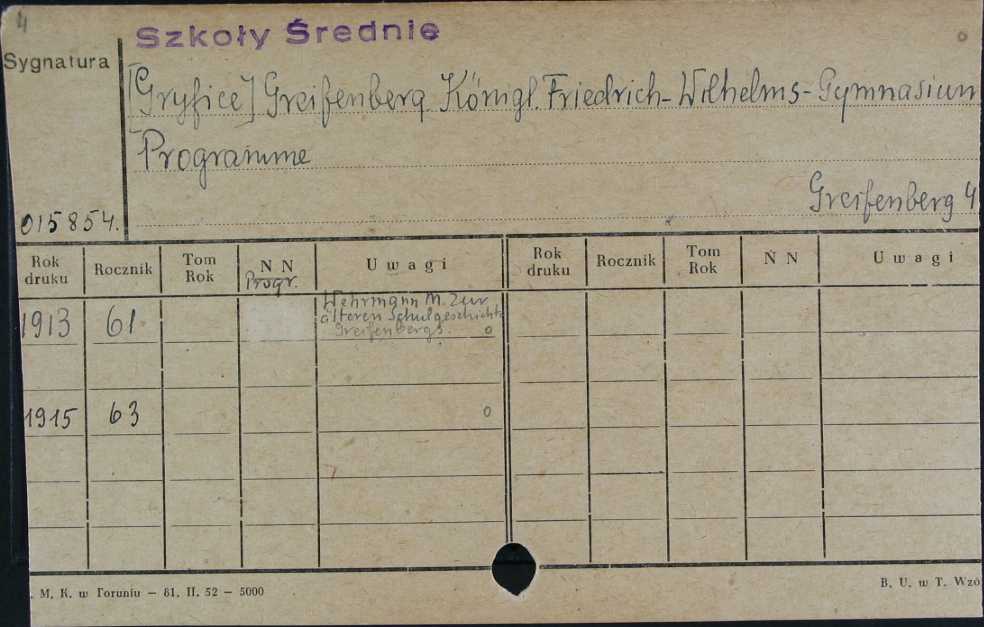 4
Szkoły Średnie
Sygnatura
[Gryfice] Greifenberg Königl. Friedrich-Wilhelms-Gymnasium
Programme
Greifenberg 4
015854.
Rok druku Rocznik Tom Rok N N Progr. Uwagi Rok druku Rocznik Tom Rok N N Uwagi
1913 61 Wehrmann M. Zur
älteren Schulgeschichte
Greifenbergs. o
1915 63 o
. M. K. w Toruniu — 81. II. 52 — 5000
B. U. w T. Wzó